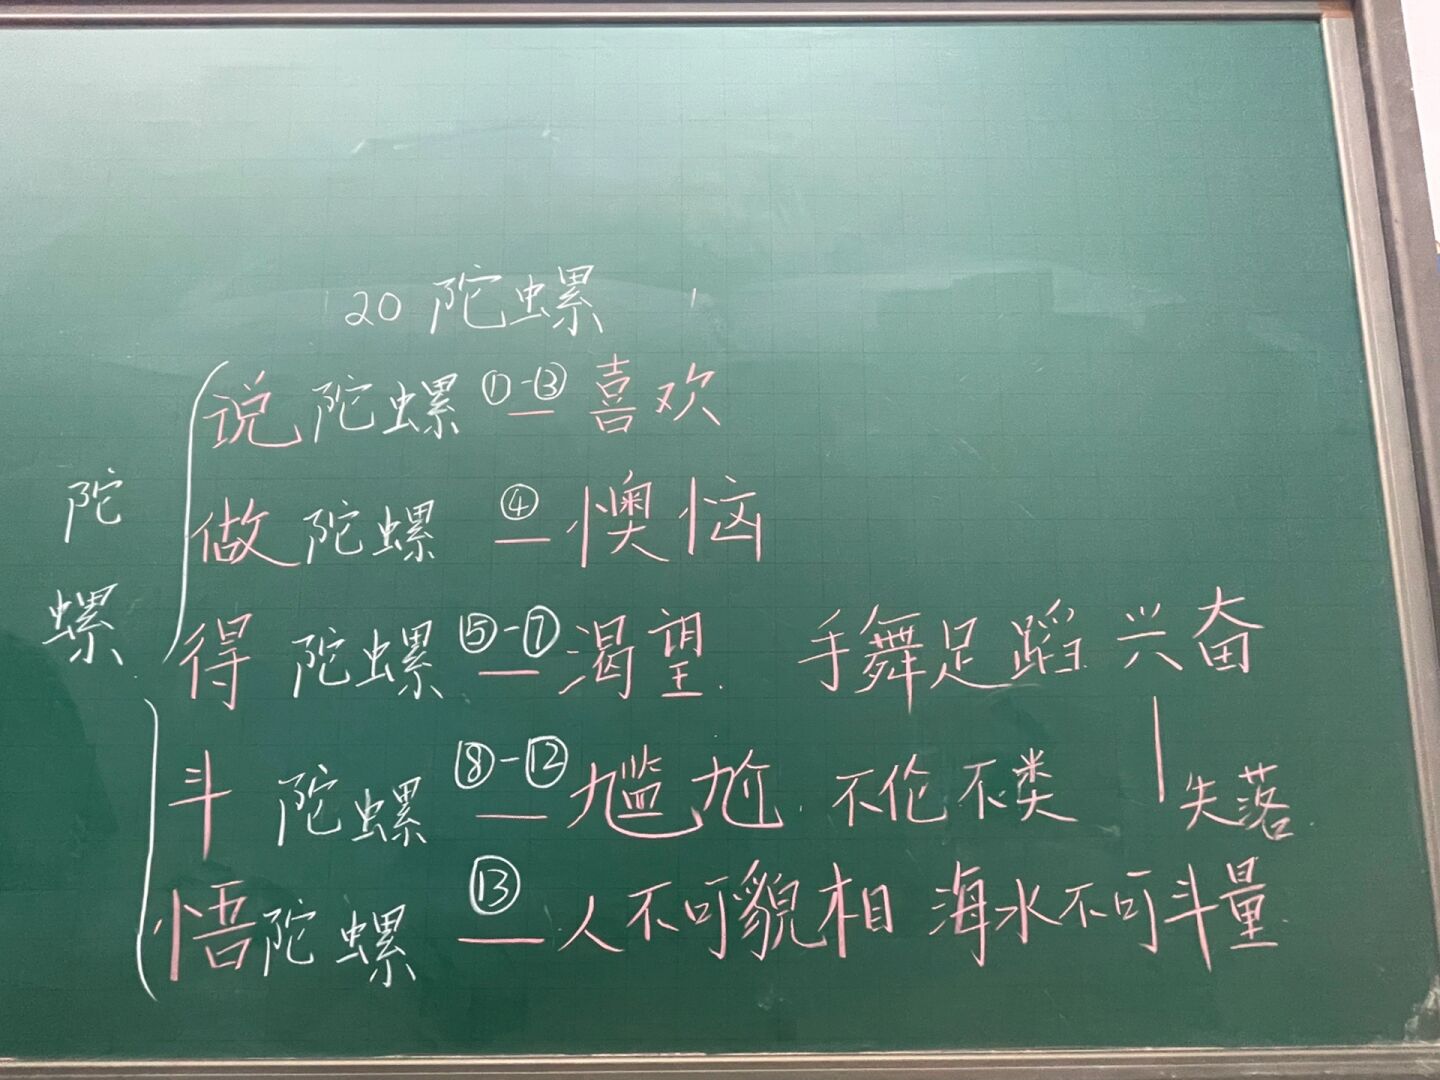 20 陀螺
陀螺
说陀螺 ①-③ 喜欢
做陀螺 ④ 懊恼
得陀螺 ⑤-⑦ 渴望 手舞足蹈 兴奋
斗陀螺 ⑧-⑫ 尴尬 不伦不类 失落
悟陀螺 ⑬ 人不可貌相 海水不可斗量